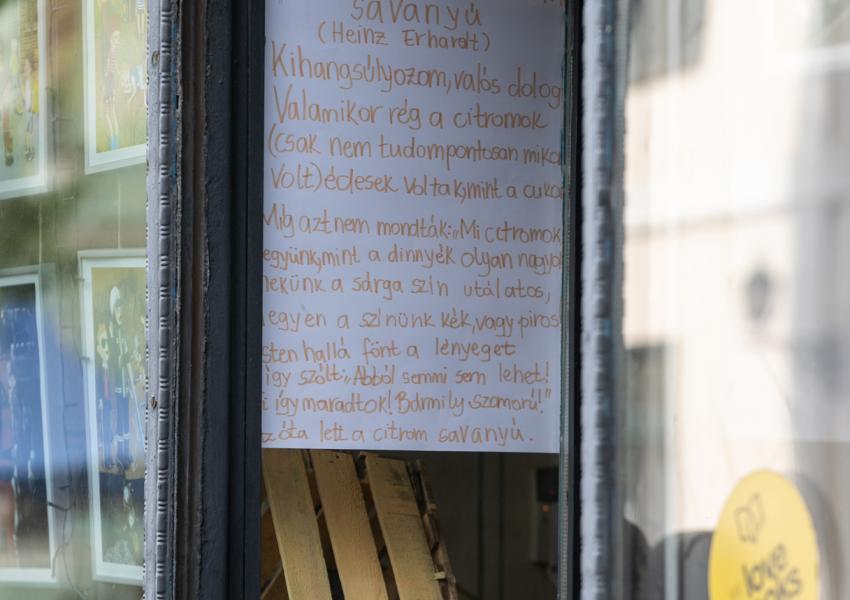 savanyú
(Heinz Erhardt)
Kihangsúlyozom, valós dolog
Valamikor rég a citromok
(csak nem tudompontosan miko
volt) édesek voltak, mint a cuko
Míg azt nem mondták: „Mi citromok
együnk, mint a dinnyék olyan nagyo
nekünk a sárga szín utálatos,
egyen a színünk kék, vagy piros
sten hallá fönt a lényeget
így szólt: „Abból semmi sem lehet!
így maradtok! Bármily szomorú!"
zóta lett a citrom savanyú.
love